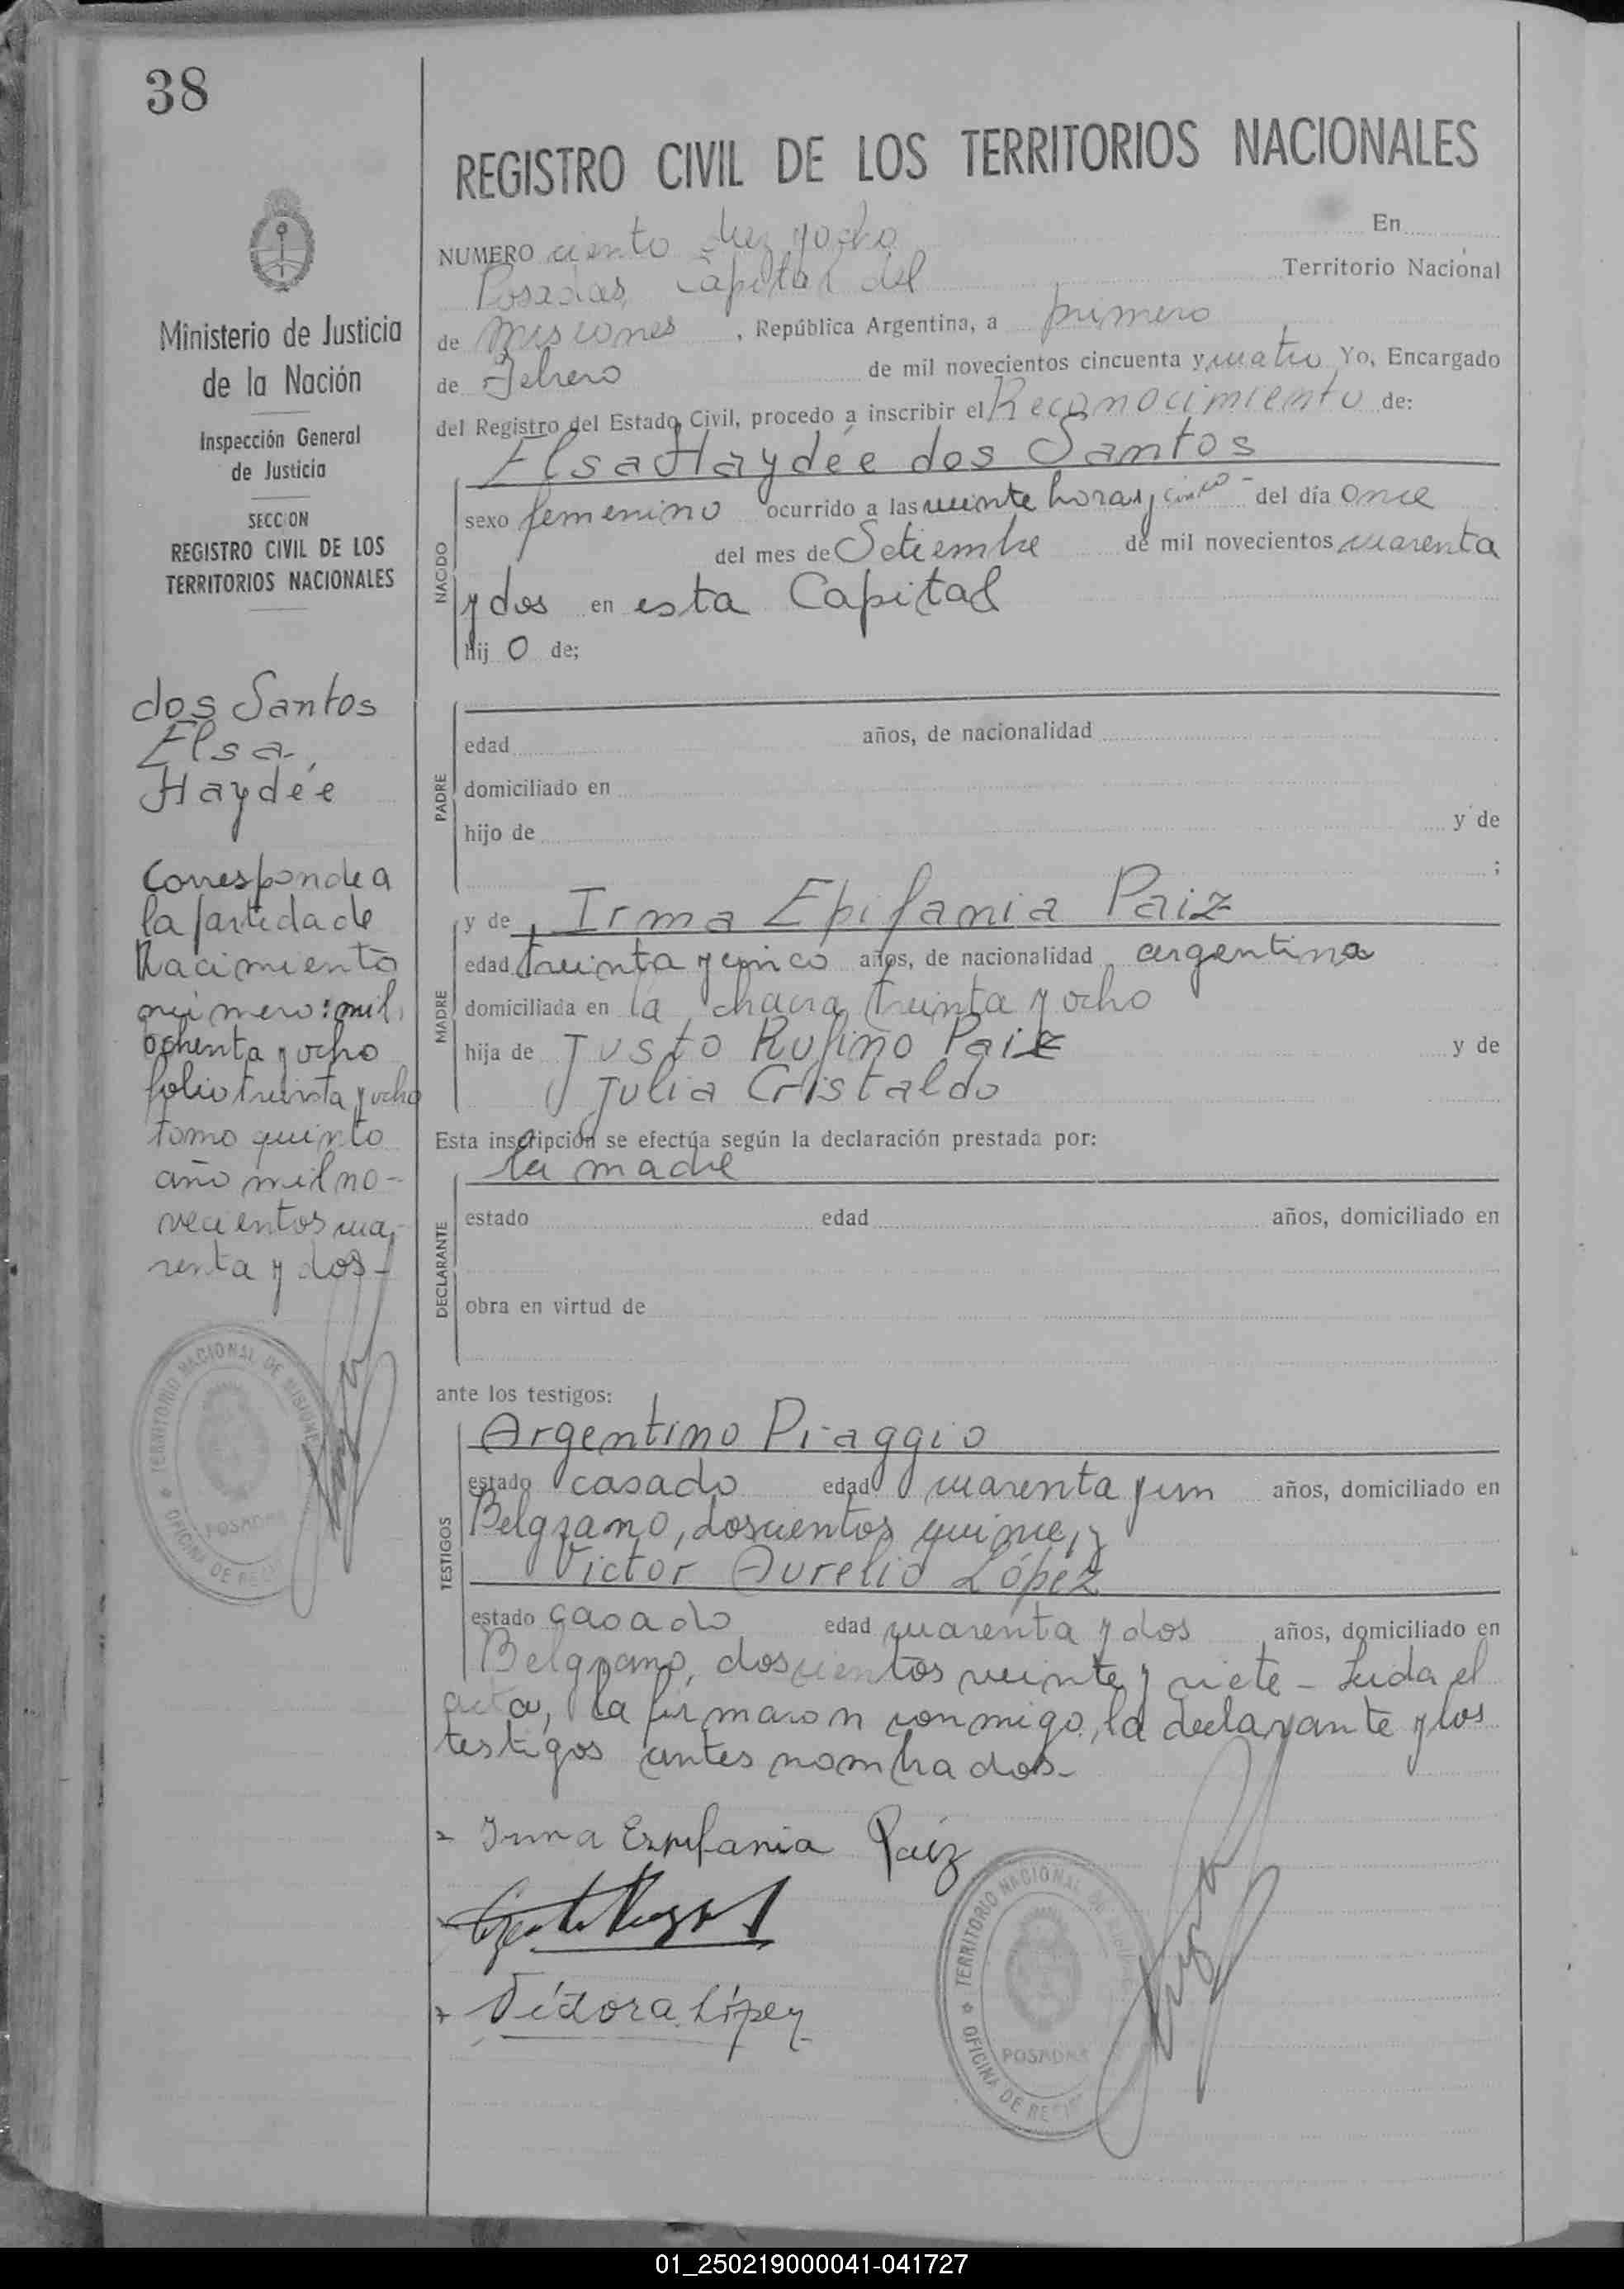 38
Ministerio de Justicia
de la Nación
Inspección General
de Justicia
SECCION
REGISTRO CIVIL DE LOS
TERRITORIOS NACIONALES
dos Santos
Elsa
Haydée
Corresponde a
la partida de
Nacimiento
número: mil
ochenta y ocho
folio treinta y ocho
tomo quinto
año mil no-
vecientos cua-
renta y dos-
TERRITORIO NACIONAL DE MISIONES
OFICINA DE
POSADAS
REGISTRO CIVIL DE LOS TERRITORIOS NACIONALES
NUMERO ciento diez y ocho En
Posadas, Capital del Territorio Nacional
de Misiones , República Argentina, a primero
de Febrero de mil novecientos cincuenta y cuatro Yo, Encargado
del Registro del Estado Civil, procedo a inscribir el Reconocimiento de:
Elsa Haydée dos Santos
NACIDO
sexo femenino ocurrido a las veinte horas y cinco - del día once
del mes de Setiembre de mil novecientos cuarenta
y dos en esta Capital
hij o de;
PADRE
edad años, de nacionalidad
domiciliado en
hijo de y de
;
MADRE
y de Irma Epifania Paiz
edad treinta y cinco años, de nacionalidad argentina
domiciliada en la chacra treinta y ocho
hija de Justo Rufino Paiz y de
Julia Cristaldo
Esta inscripción se efectúa según la declaración prestada por:
la madre
DECLARANTE
estado edad años, domiciliado en
obra en virtud de
ante los testigos:
TESTIGOS
Argentino Piaggio
estado casado edad cuarenta y un años, domiciliado en
Belgrano, doscientos quince, y
Victor Aurelio López
estado casado edad cuarenta y dos años, domiciliado en
Belgrano, doscientos veinte y siete - Leida el
acta, la firmaron conmigo, la declarante y los
testigos antes nombrados-
Irma Epifania Paiz
TERRITORIO NACIONAL DE
OFICINA DE
POSADAS
01_250219000041-041727